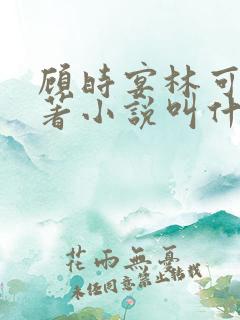 顾时宴林可
著小说叫什
花雨無憂
未经同意禁止转载